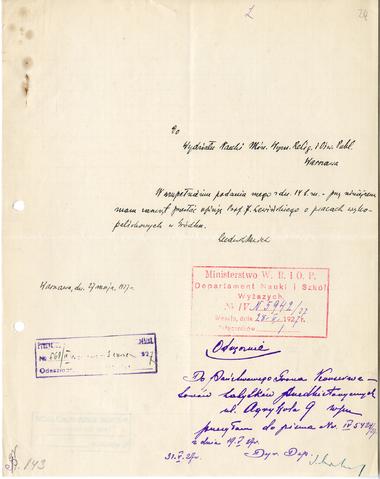 24
Do
Wydziału Nauki Min. Wyzn. Relig. i Ośw. Publ.
Warszawa
W uzupełnieniu podania mego z dn. 14 b.m. – przy niniejszem
mam zaszczyt przesłać opinję Prof. J. Lewińskiego o pracach wyko-
paliskowych w Gródku.
Warszawa, dn. 27 maja 1927 r.
Ministerstwo W. R. i O. P.
Departament Nauki i Szkół
Wyższych.
№ IV N 5942/27
Weszło, dnia 28-V 1927 r.
Załączników 1
Odręcznie
Do Państwowego Grona Konserwa-
torów Zabytków Przedhistorycznych
ul. Agrykola 9 w m.
z dnia 19.V 27r.
31.V 27r. Dyr. Dep.
143